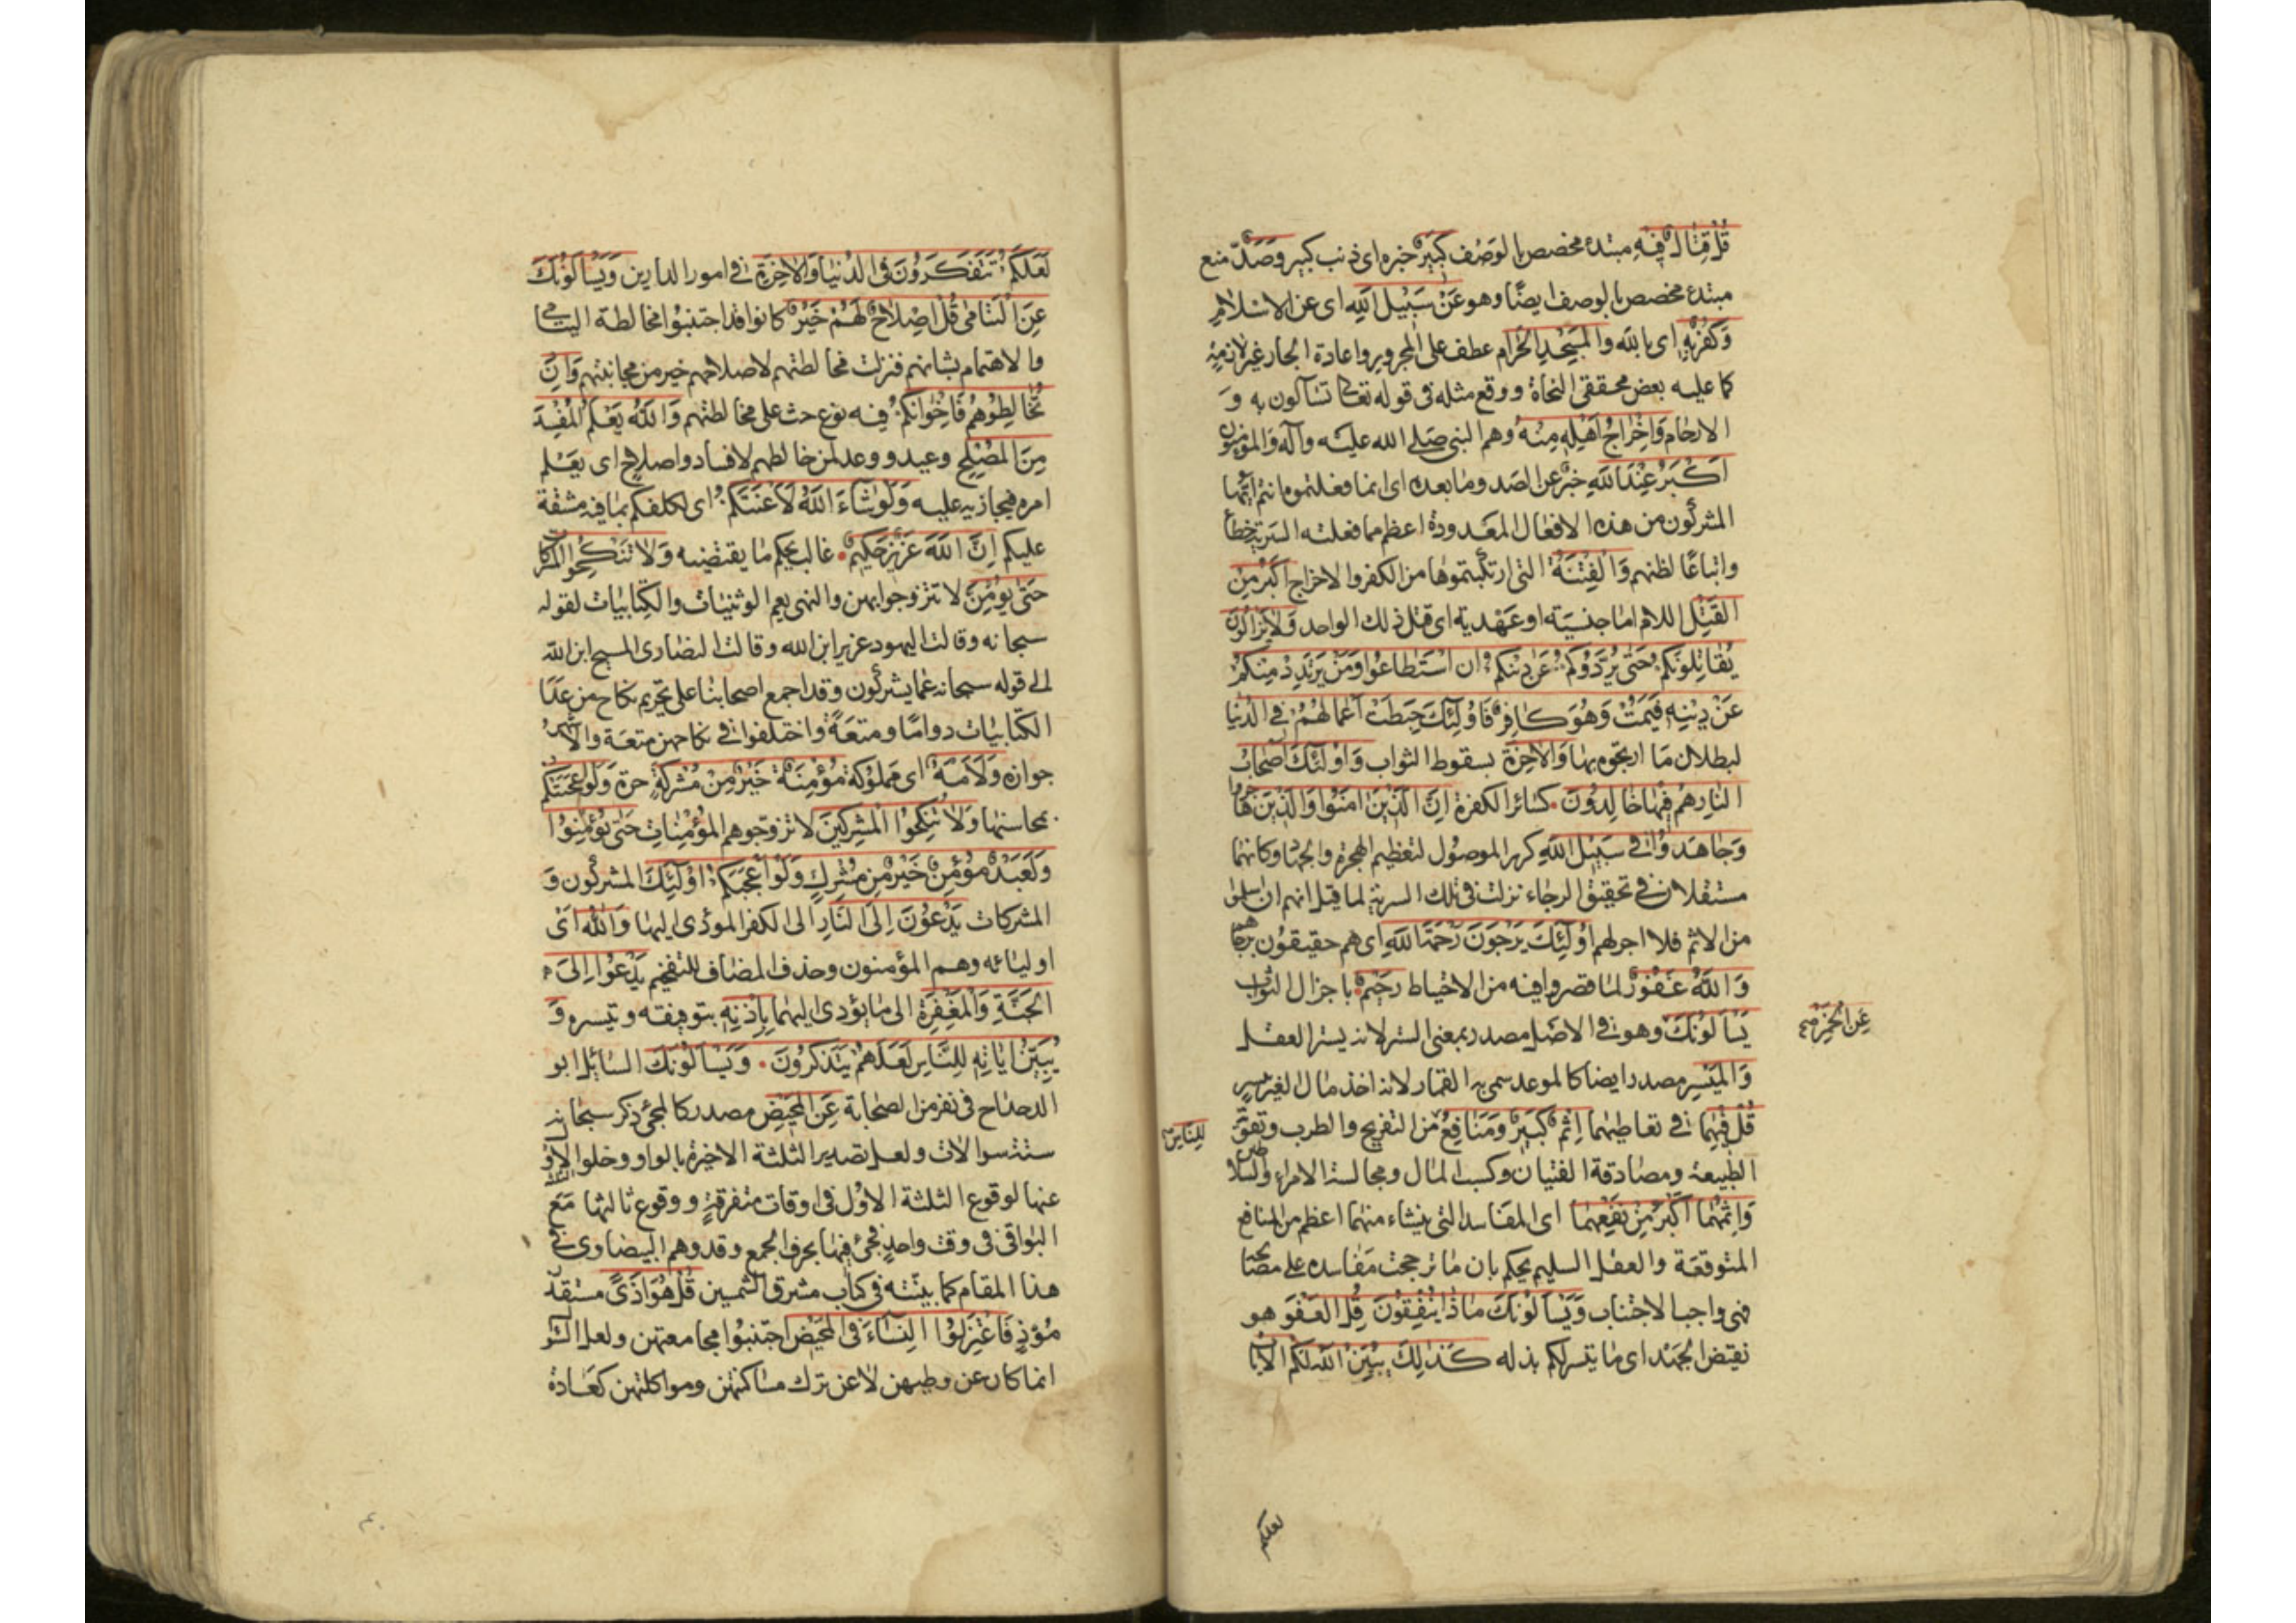 قُلْ قِتَالٌ فِيهِ مبتدء مخصص بالوَصْف كَبِيرٌ خبره اى ذنب كبير وَصَدٌّ منع
مبتدء مخصص بالوصف ايضًا وهو عَنْ سَبِيلِ اللهِ اى عن الاسلام
وَكُفْرٌ بِهِ اى بالله وَالمَسْجِدِ الحَرَامِ عطف على المجرور واعادة الجار غير لازمة
كما عليه بعض محققى النحاة ووقع مثله فى قوله تعالى تسآلون به وَ
الارحام وَاِخْرَاجُ اَهْلِهِ مِنْهُ وهم النبى صلى الله عليه وآله والمؤمنون
اَكْبَرُ عِنْدَ اللهِ خبر عن الصد وما بعده اى انما فعلتموه انتم ايّها
المشركون من هذه الافعال المعدودة اعظم مما فعلته السرية خطأ
واتباعًا لظنهم وَالفِتْنَةُ التى ارتكبتموها من الكفر والاخراج اَكْبَرُ مِنَ
القَتْلِ اللام اما جنسية او عهدية اى قتل ذلك الواحد وَلَا يَزَالُونَ
يُقَاتِلُونَكُمْ حَتَّى يَرُدُّوكُمْ عَنْ دِينِكُمْ اِنِ اسْتَطَاعُوا وَمَنْ يَرْتَدِدْ مِنْكُمْ
عَنْ دِينِهِ فَيَمُتْ وَهُوَ كَافِرٌ فَاُولٰئِكَ حَبِطَتْ اَعْمَالُهُمْ فِى الدُّنْيَا
لبطلان ما ارتجوه بها وَالآخِرَةِ بسقوط الثواب وَاُولٰئِكَ اَصْحَابُ
النَّارِ هُمْ فِيهَا خَالِدُونَ كسائر الكفرة اِنَّ الَّذِينَ آمَنُوا وَالَّذِينَ هَاجَرُوا
وَجَاهَدُوا فِى سَبِيلِ اللهِ كرر الموصول لتعظيم الهجرة والجهاد وكانهما
مستقلان فى تحقيق الرجاء نزلت فى تلك السرية لما قيل انهم ان سلموا
من الاثم فلا اجر لهم اُولٰئِكَ يَرْجُونَ رَحْمَةَ اللهِ اى هم حقيقون برجائها
وَاللهُ غَفُورٌ لما قصروا فيه من الاحتياط رَحِيمٌ باجزال الثواب
يَسْأَلُونَكَ وهو فى الاصل مصدر بمعنى الستر لانه يستر العقل
عَنِ الْخَمْرِ صح
وَالمَيْسِرِ مصدر ايضا كالموعد سمى به القمار لانه اخذ مال الغير بيسر
قُلْ فِيهِمَا فى تعاطيهما اِثْمٌ كَبِيرٌ وَمَنَافِعُ من التفريح والطرب وتقوّى
لِلنَّاسِ
الطبيعة ومصادقة الفتيان وكسب المال ومجالسة الامراء والسلاطين
وَاِثْمُهُمَا اَكْبَرُ مِنْ نَفْعِهِمَا اى المفاسد التى ينشاء منهما اعظم من المنافع
المتوقعة والعقل السليم يحكم بان ما ترجحت مفاسده على مصالحه
فهى واجب الاجتناب وَيَسْأَلُونَكَ مَاذَا يُنْفِقُونَ قُلِ العَفْوَ هو
نقيض الجهد اى ما يتيسر لكم بذله كَذٰلِكَ يُبَيِّنُ اللهُ لَكُمُ الآيَاتِ
لعلكم
لَعَلَّكُمْ تَتَفَكَّرُونَ فِى الدُّنْيَا وَالآخِرَةِ فى امور الدارين وَيَسْأَلُونَكَ
عَنِ اليَتَامَى قُلْ اِصْلَاحٌ لَهُمْ خَيْرٌ كانوا قد اجتنبوا مخالطة اليتامى
والاهتمام بشانهم فنزلت مخالطتهم لاصلاحهم خير من مجانبتهم وَاِنْ
تُخَالِطُوهُمْ فَاِخْوَانُكُمْ فيه نوع حث على مخالطتهم وَاللهُ يَعْلَمُ المُفْسِدَ
مِنَ المُصْلِحِ وعيد ووعد لمن خالطهم لافساد واصلاح اى يعلم
امره فيجازيه عليه وَلَوْ شَاءَ اللهُ لَاَعْنَتَكُمْ اى لكلفكم بما فيه مشقة
عليكم اِنَّ اللهَ عَزِيزٌ حَكِيمٌ غالب يحكم ما يقتضيه وَلَا تَنْكِحُوا المُشْرِكَاتِ
حَتَّى يُؤْمِنَّ لا تتزوجوا بهن والنهى يعم الوثنيات والكتابيات لقوله
سبحانه وقالت اليهود عزير ابن الله وقالت النصارى المسيح ابن الله
الى قوله سبحانه عما يشركون وقد اجمع اصحابنا على تحريم نكاح من عدا
الكتابيات دوامًا ومتعةً واختلفوا فى نكاحهن متعة والاشهر
جوازه وَلَاَمَةٌ اى مملوكة مُؤْمِنَةٌ خَيْرٌ مِنْ مُشْرِكَةٍ حرة وَلَوْ اَعْجَبَتْكُمْ
بمحاسنها وَلَا تُنْكِحُوا المُشْرِكِينَ لا تزوجوهم المؤمنات حَتَّى يُؤْمِنُوا
وَلَعَبْدٌ مُؤْمِنٌ خَيْرٌ مِنْ مُشْرِكٍ وَلَوْ اَعْجَبَكُمْ اُولٰئِكَ المشركون وَ
المشركات يَدْعُونَ اِلَى النَّارِ الى الكفر المؤدى اليها وَاللهُ اى
اوليائه وهم المؤمنون وحذف المضاف للتفخيم يَدْعُوا اِلَى
الجَنَّةِ وَالمَغْفِرَةِ الى ما يؤدى اليهما بِاِذْنِهِ بتوفيقه وتيسره وَ
يُبَيِّنُ آيَاتِهِ لِلنَّاسِ لَعَلَّهُمْ يَتَذَكَّرُونَ وَيَسْأَلُونَكَ السائل ابو
الدحداح فى نفر من الصحابة عَنِ المَحِيضِ مصدر كالمجئ ذكر سبحانه
ستة سوالات ولعل تصدير الثلثة الاخيرة بالواو وخلو الاول
عنها لوقوع الثلثة الاول فى اوقات متفرقة ووقوع ثالثها مَعَ
البواقى فى وقت واحد فجئ فيها بحرف الجمع وقد وهم البيضاوى فى
هذا المقام كما بينته فى كتاب مشرق الشمسين قُلْ هُوَ اَذًى مستقذر
مؤذٍ فَاعْتَزِلُوا النِّسَاءَ فِى المَحِيضِ اجتنبوا مجامعتهن ولعل
انما كان عن وطيهن لا عن ترك مساكنتهن ومواكلتهن كعادة